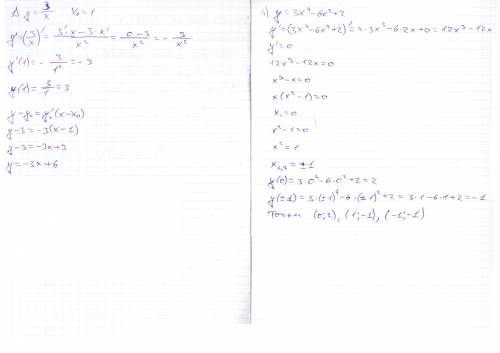 1) y = 3/x   x₀ = 1
y' = (3/x)' = (3'·x − 3·x')/x² = (0−3)/x² = − 3/x²
y'(1) = − 3/1² = −3
y(1) = 3/1 = 3
y − y₀ = y'₀(x − x₀)
y − 3 = −3(x − 1)
y − 3 = −3x + 3
y = −3x + 6
4) y = 3x⁴ − 6x² + 2
y' = (3x⁴ − 6x² + 2)' = 4·3x³ − 6·2x + 0 = 12x³ − 12x
y' = 0
12x³ − 12x = 0
x³ − x = 0
x(x² − 1) = 0
x₁ = 0
x² − 1 = 0
x² = 1
x₂,₃ = ±1
y(0) = 3·0⁴ − 6·0² + 2 = 2
y(±1) = 3·(±1)⁴ − 6·(±1)² + 2 = 3·1 − 6·1 + 2 = −1
Точки (0; 2), (1; −1), (−1; −1)